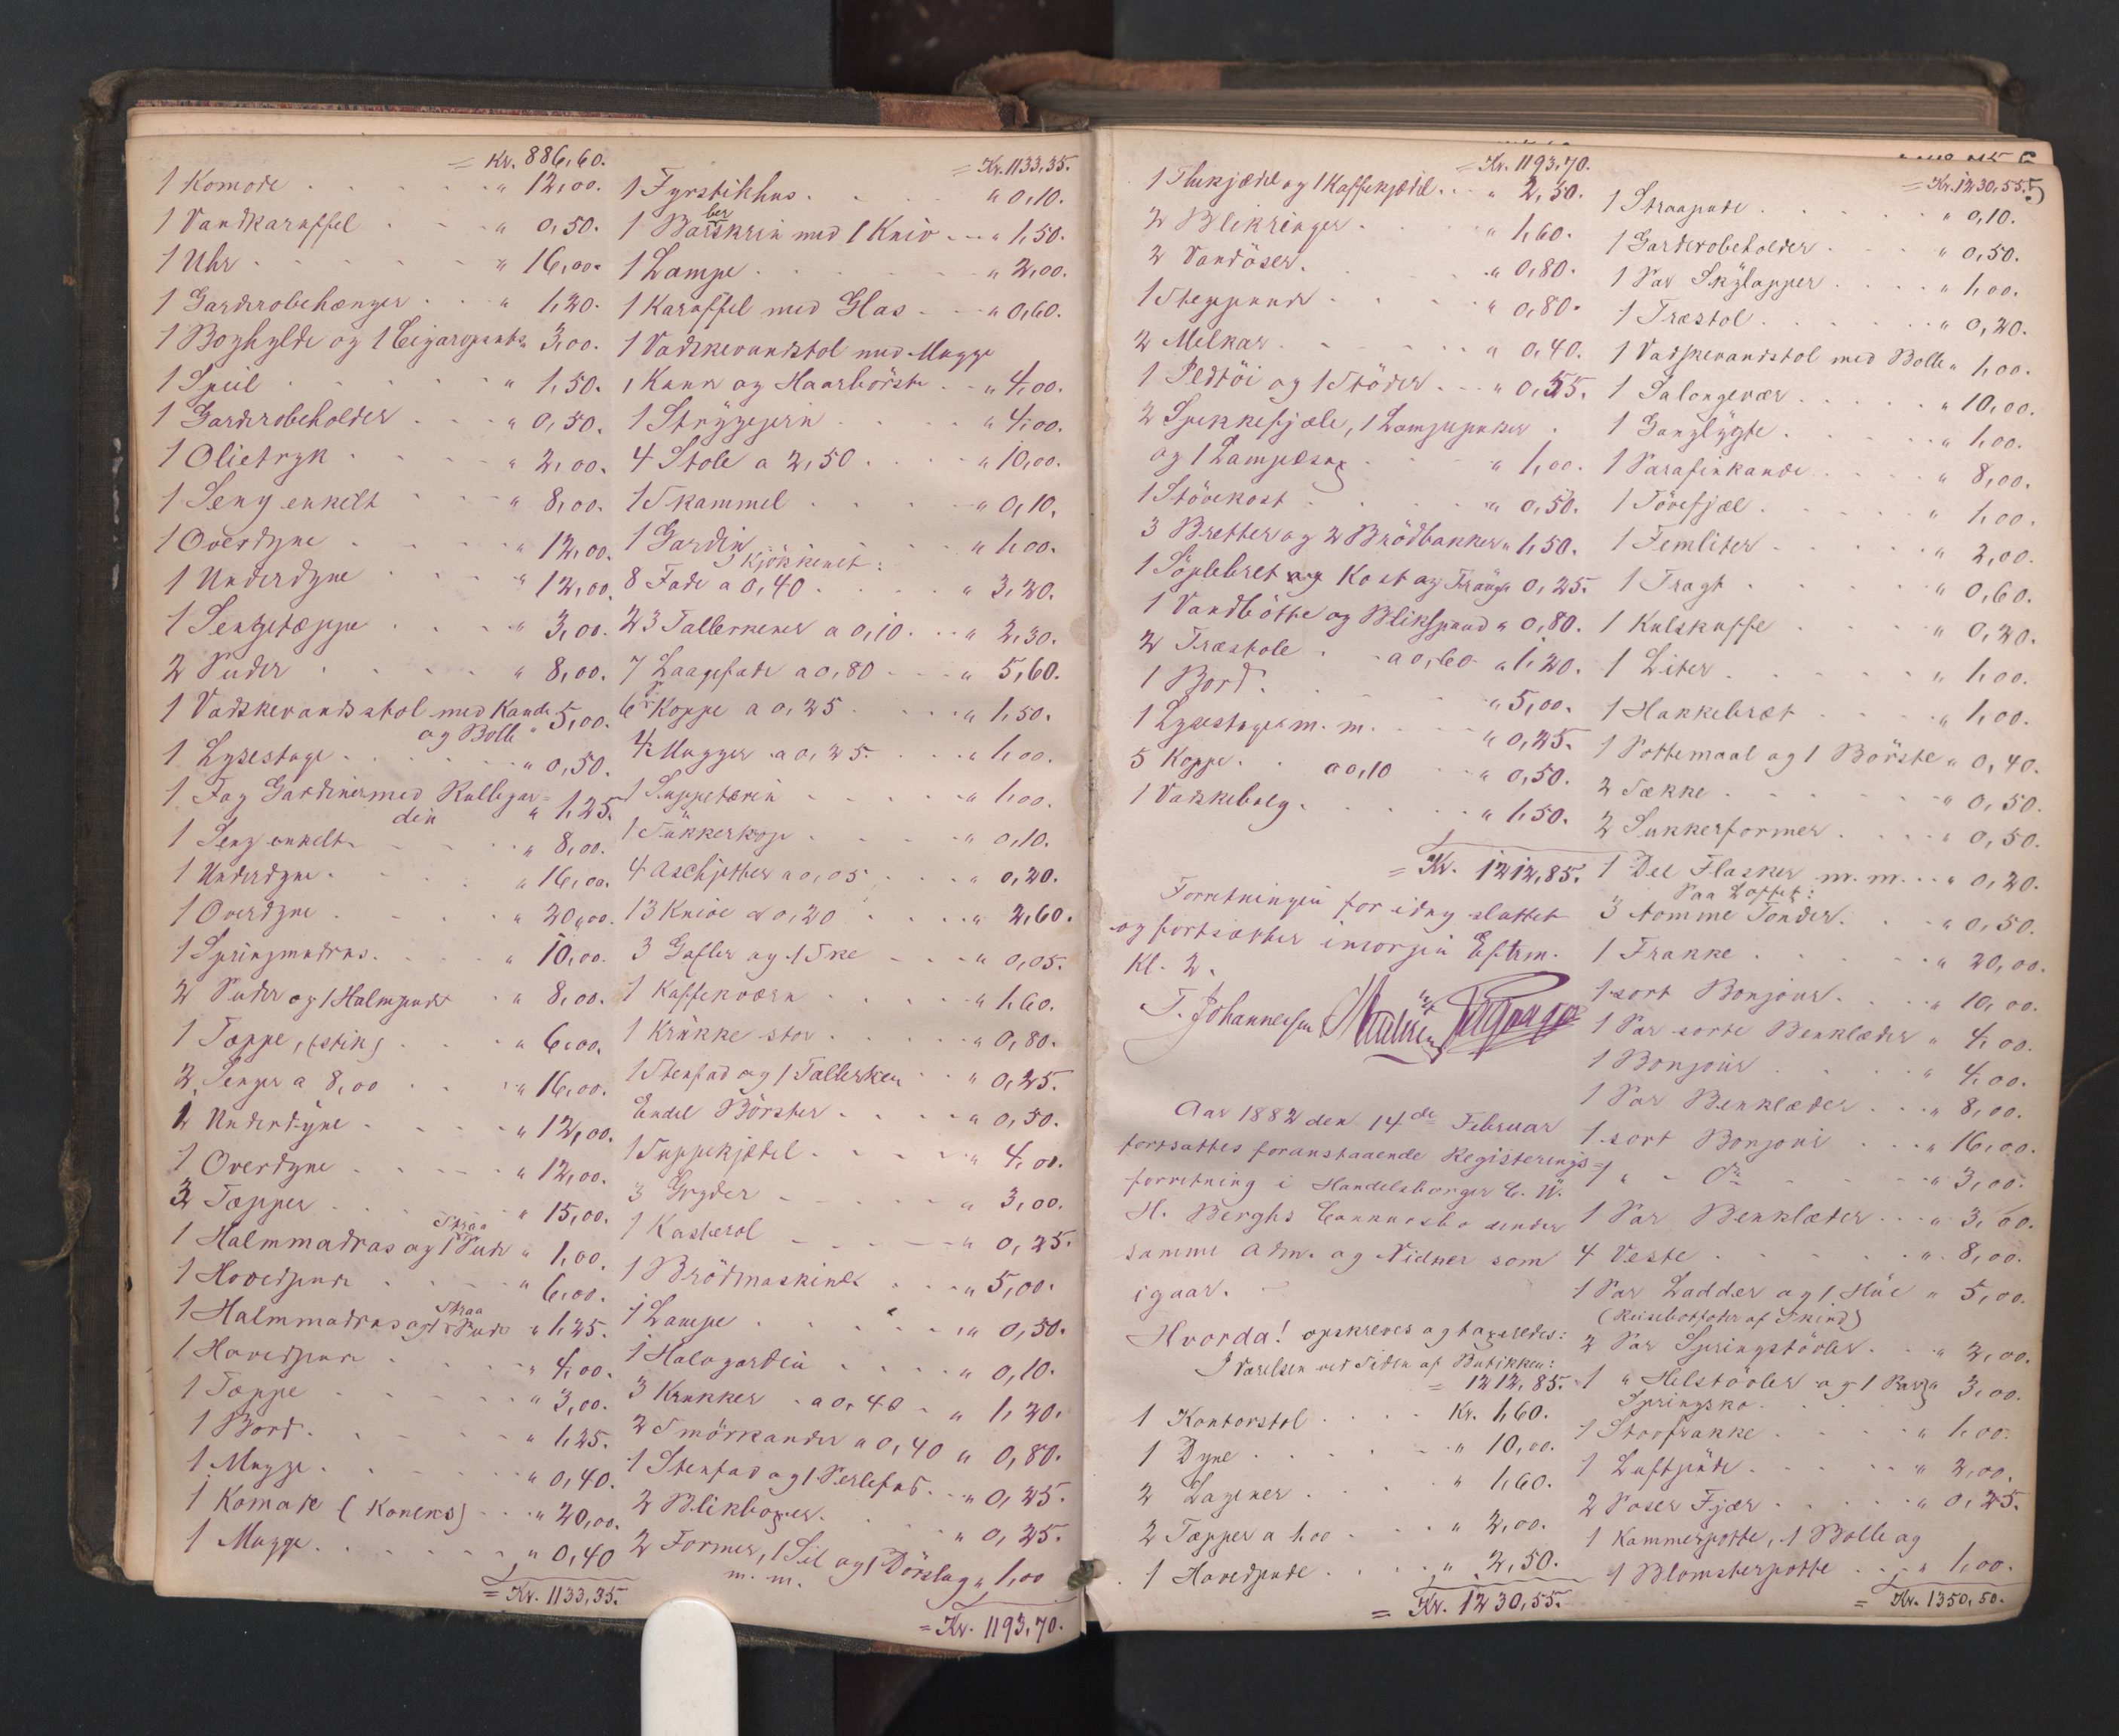 = Kr. 886,60.
1 Komode . . . . . " 12,00.
1 Vandkaraffel . . . " 0,50.
1 Uhr . . . . . . " 16,00.
1 Garderobehænger . . " 1,20.
1 Boghylde og 1 Cigar " 3,00.
1 Speil . . . . . " 1,50.
1 Garderobeholder . . . " 0,50.
1 Olietryk . . . . " 2,00.
1 Seng enkelt . . . " 8,00.
1 Overdyne . . . . " 12,00.
1 Underdyne . . . . " 12,00.
1 Sengetæppe . . . . " 3,00.
2 Puder . . . . . " 8,00.
1 Vadskevandsstol med Kande
og Bolle " 5,00.
1 Lysestage . . . . . " 0,50.
1 Fag Gardiner med Rullegar=
din " 1,25.
1 Seng enkelt . . . " 8,00.
1 Underdyne . . . . " 16,00.
1 Overdyne . . . . " 20,00.
1 Springmadras. . . . " 10,00.
2 Puder og 1 Halmpude . " 8,00.
1 Tæppe, (stink) . . . " 6,00.
2 Senge a 8,00 . . . " 16,00.
1 Underdyne . . . . " 12,00.
1 Overdyne . . . . " 12,00.
3 Tæpper . . . . " 15,00.
1 Halmmadras og 1 Straa Pude " 1,00.
1 Hovedpude . . . . " 6,00.
1 Halmmadras og 1 Straa Pude " 1,25.
1 Hovedpude . . . . " 4,00.
1 Tæppe . . . . . " 3,00.
1 Bord. . . . . . " 1,25.
1 Mugge. . . . . " 0,40.
1 Komode (Konens) . . . " 20,00.
1 Mugge. . . . . . " 0,40
= Kr. 1133,35.
= Kr. 1133,35.
1 Fyrstikhus. . . . " 0,10.
1 Barberskrin med 1 Kniv . . " 1,50.
1 Lampe . . . . . " 2,00.
1 Karaffel med Glas . . " 0,60.
1 Vadskevandstol med Mugge
1 Kam og Haarbörste . . " 4,00.
1 Strygejern . . . . " 4,00.
4 Stole a 2,50 . . . . " 10,00.
1 Skammel . . . . " 0,10.
1 Gardin . . . . " 1,00.
I Kjökkenet:
8 Fade a 0,40 . . . . " 3,20.
23 Tallerkener a 0,10. . . " 2,30.
7 Laagefade a 0,80 . . " 5,60.
6 Koppe a 0,25 . . . " 1,50.
4 Mugger a 0,25. . . " 1,00.
1 Suppeterin . . . . " 1,00.
1 Sukkerkop . . . . " 0,10.
4 Aschjetter a 0,05 . . . " 0,20.
13 Knive a 0,20 . . . " 2,60.
3 Gafler og 1 Ske . . . " 0,05.
1 Kaffekværn . . . . " 1,60.
1 Krukke stor . . . . " 0,80.
1 Stenfad og 1 Tallerken . . " 0,25.
Endel Börster . . . . " 0,50.
1 Suppekjedel . . . . " 4,00.
3 Gryder . . . . . " 3,00.
1 Kasserol . . . . " 0,25.
1 Brödmaskine . . . " 5,00.
1 Lampe . . . . . " 0,50.
1 Halvgardin . . . . " 0,10.
3 Krukker a 0,40 . . " 1,20.
2 Smörkander a 0,40 " 0,80.
1 Stenfad og 1 Perlefad . . " 0,25.
2 Blikboxer. . . . . " 0,25.
2 Former, 1 Sil og 1 Dörslag " 1,00
m. m.
= Kr. 1193,70.
= Kr. 1193,70.
1 Thekjædel og 1 Kaffekjædel. . " 2,50.
2 Blikringer . . . . " 1,60.
2 Vandöser. . . . . " 0,80.
1 Stegepande . . . . " 0,80.
2 Melkar . . . . . " 0,40.
1 Pedtöi og 1 Stöder . . " 0,55.
2 Spekkefjæle, 1 Lampe
og 1 Lampe . . . " 1,00.
1 Stövekost . . . . " 0,50.
3 Bretter og 2 Brödbakker " 1,50.
1 Söplebret og Kost og Traug " 0,25.
1 Vandbötte og Blikspand " 0,80.
2 Træstole . . a 0,60 " 1,20.
1 Bord. . . . . . " 5,00.
1 Lysestage m. m. . . . " 0,25.
5 Koppe. . a 0,10 . . " 0,50.
1 Vadskebalg. . . . . " 1,50.
= Kr. 1212,85.
Forretningen for idag sluttet
og fortsætter imorgen Efterm.
Kl. 2.
T. Johannesen
Aar 1882 den 14de Februar
fortsattes foranstaaende Registerings=
forretning i Handelsborger C. W.
H. Berghs Concursbo under
samme Adm. og Vidner som
igaar.
Hvorda! opskreves og taxeredes:
I Værelsen ved Siden af Butikken:
= 1212,85.
1 Kontorstol . . . . Kr. 1,60.
1 Dyne . . . . . " 10,00.
2 Lagener . . . . " 1,60.
2 Tæpper a 1,00 . . . " 2,00.
1 Hovedpude . . . . " 2,50.
= Kr. 1230,55.
= Kr. 1230,55.
1 Straapude . . . . " 0,10.
1 Garderobeholder . . . " 0,50.
1 Par Skylapper . . . . " 1,00.
1 Træstol . . . . . " 0,20.
1 Vadskevandstol med Bolle " 1,00.
1 Salongevær . . . . " 10,00.
1 Ganglygte . . . . . " 1,00.
1 Parafinkande . . . . " 8,00.
1 Tövefjæl . . . . . " 1,00.
1 Femliter . . . . . " 2,00.
1 Tragt . . . . . " 0,60.
1 Kulskuffe . . . . . " 0,20.
1 Liter . . . . . . " 1,00.
1 Hakkebræt . . . . " 1,00.
1 Pottemaal og 1 Börste " 0,40.
2 Sække . . . . . " 0,50.
2 Sukkerformer . . . . " 0,50.
1 Del Flasker m. m. . . " 0,20.
Paa Loftet:
3 tomme Tönder. . . . " 0,50.
1 Frakke . . . . . " 20,00.
1 sort Bonjour. . . . " 10,00.
1 Par sorte Benklæder " 4,00.
1 Bonjour . . . . " 4,00.
1 Par Benklæder . . . " 8,00.
1 sort Bonjour . . . " 16,00.
1 " - Do - - - " 3,00.
1 Par Benklæder . . . " 3,00.
4 Veste . . . . . " 8,00.
1 Par Ladder og 1 Hue " 5,00.
(Reisebotforer af Skind)
2 Par Springstövler. . . " 2,00.
1 " Helstövler og 1 Par " 3,00.
Springsko. . . .
1 Storfrakke . . . . " 1,00.
1 Luftpude . . . . . " 2,00.
2 Poser Fjær . . . . " 0,25.
1 Kammerpotte, 1 Bolle og
1 Blomsterpotte . . . " 1,00.
= Kr. 1350,50.